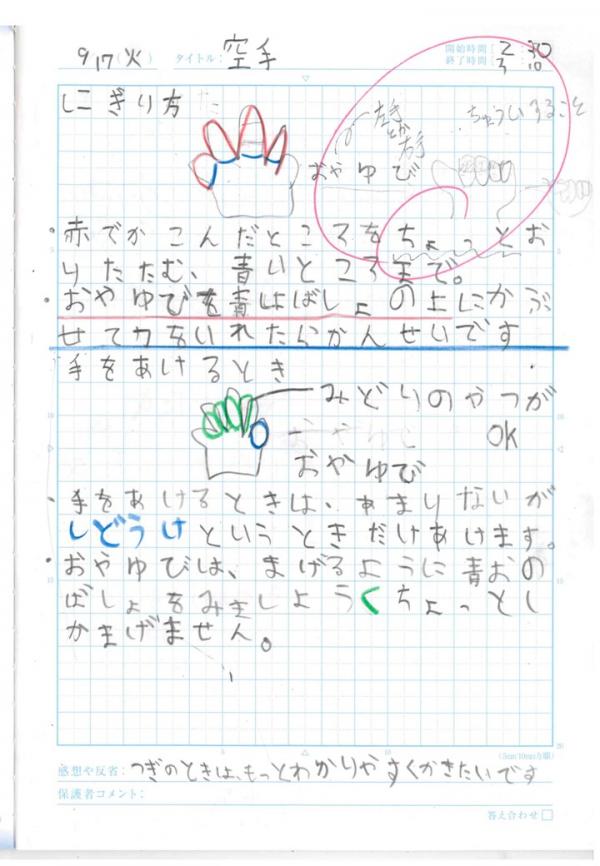 9/17(火) タイトル: 空手 開始時間 2:30
終了時間 3:10
にぎり方
左手
とか
右手
ちゅういすること
おやゆび
・赤でかこんだところをちょっとお
りたたむ、青いところまで。
・おやゆびを青いばしょの上にかぶ
せて力をいれたらかんせいです
手をあけるとき
みどりのやつが
OK
おやゆび
・手をあけるときは、あまりないが
しどうけというときだけあけます。
・おやゆびは、まげるように青おの
ばしょをみましょうくちょっとし
かまげません。
(5mm/10mm方眼)
感想や反省: つぎのときは、もっとわかりやすくかきたいです
保護者コメント:
答え合わせ